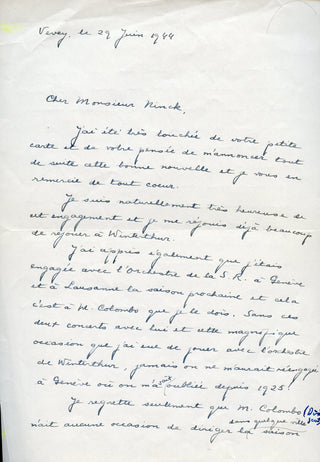 Vevey, le 29 Juin 1944
Cher Monsieur Ninck,
J'ai été très touchée de votre petite
carte et de votre pensée de m'annoncer tout
de suite cette bonne nouvelle et je vous en
remercie de tout coeur.
Je suis naturellement très heureuse de
cet engagement et je me réjouis déjà beaucoup
de rejouer à Winterthur.
J'ai appris également que j'étais
engagée avec l'Orchestre de la S.R. à Genève
et à Lausanne la saison prochaine et cela
c'est à M. Colombo que je le dois. Sans ces
deux concerts avec lui et cette magnifique
occasion que j'ai eue de jouer avec l'orchestre
de Winterthur, jamais on ne m'aurait réengagée
à Genève où on m'a oubliée depuis 1925!
Je regrette seulement que M. Colombo
n'ait aucune occasion de diriger la saison
dans quelque ville